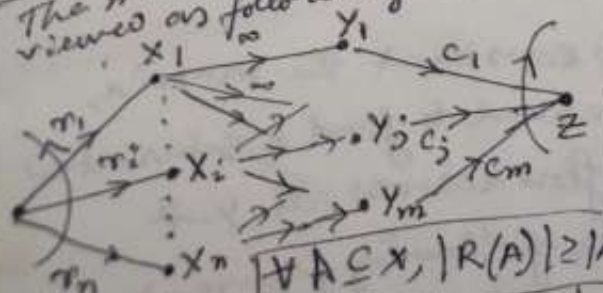 The
viewed as follo
X1 ∞ Y1 c1
r1 ∞
ri Xi Yj cj Z
Ym cm
rn Xn
∀ A ⊆ X, |R(A)| ≥ |A